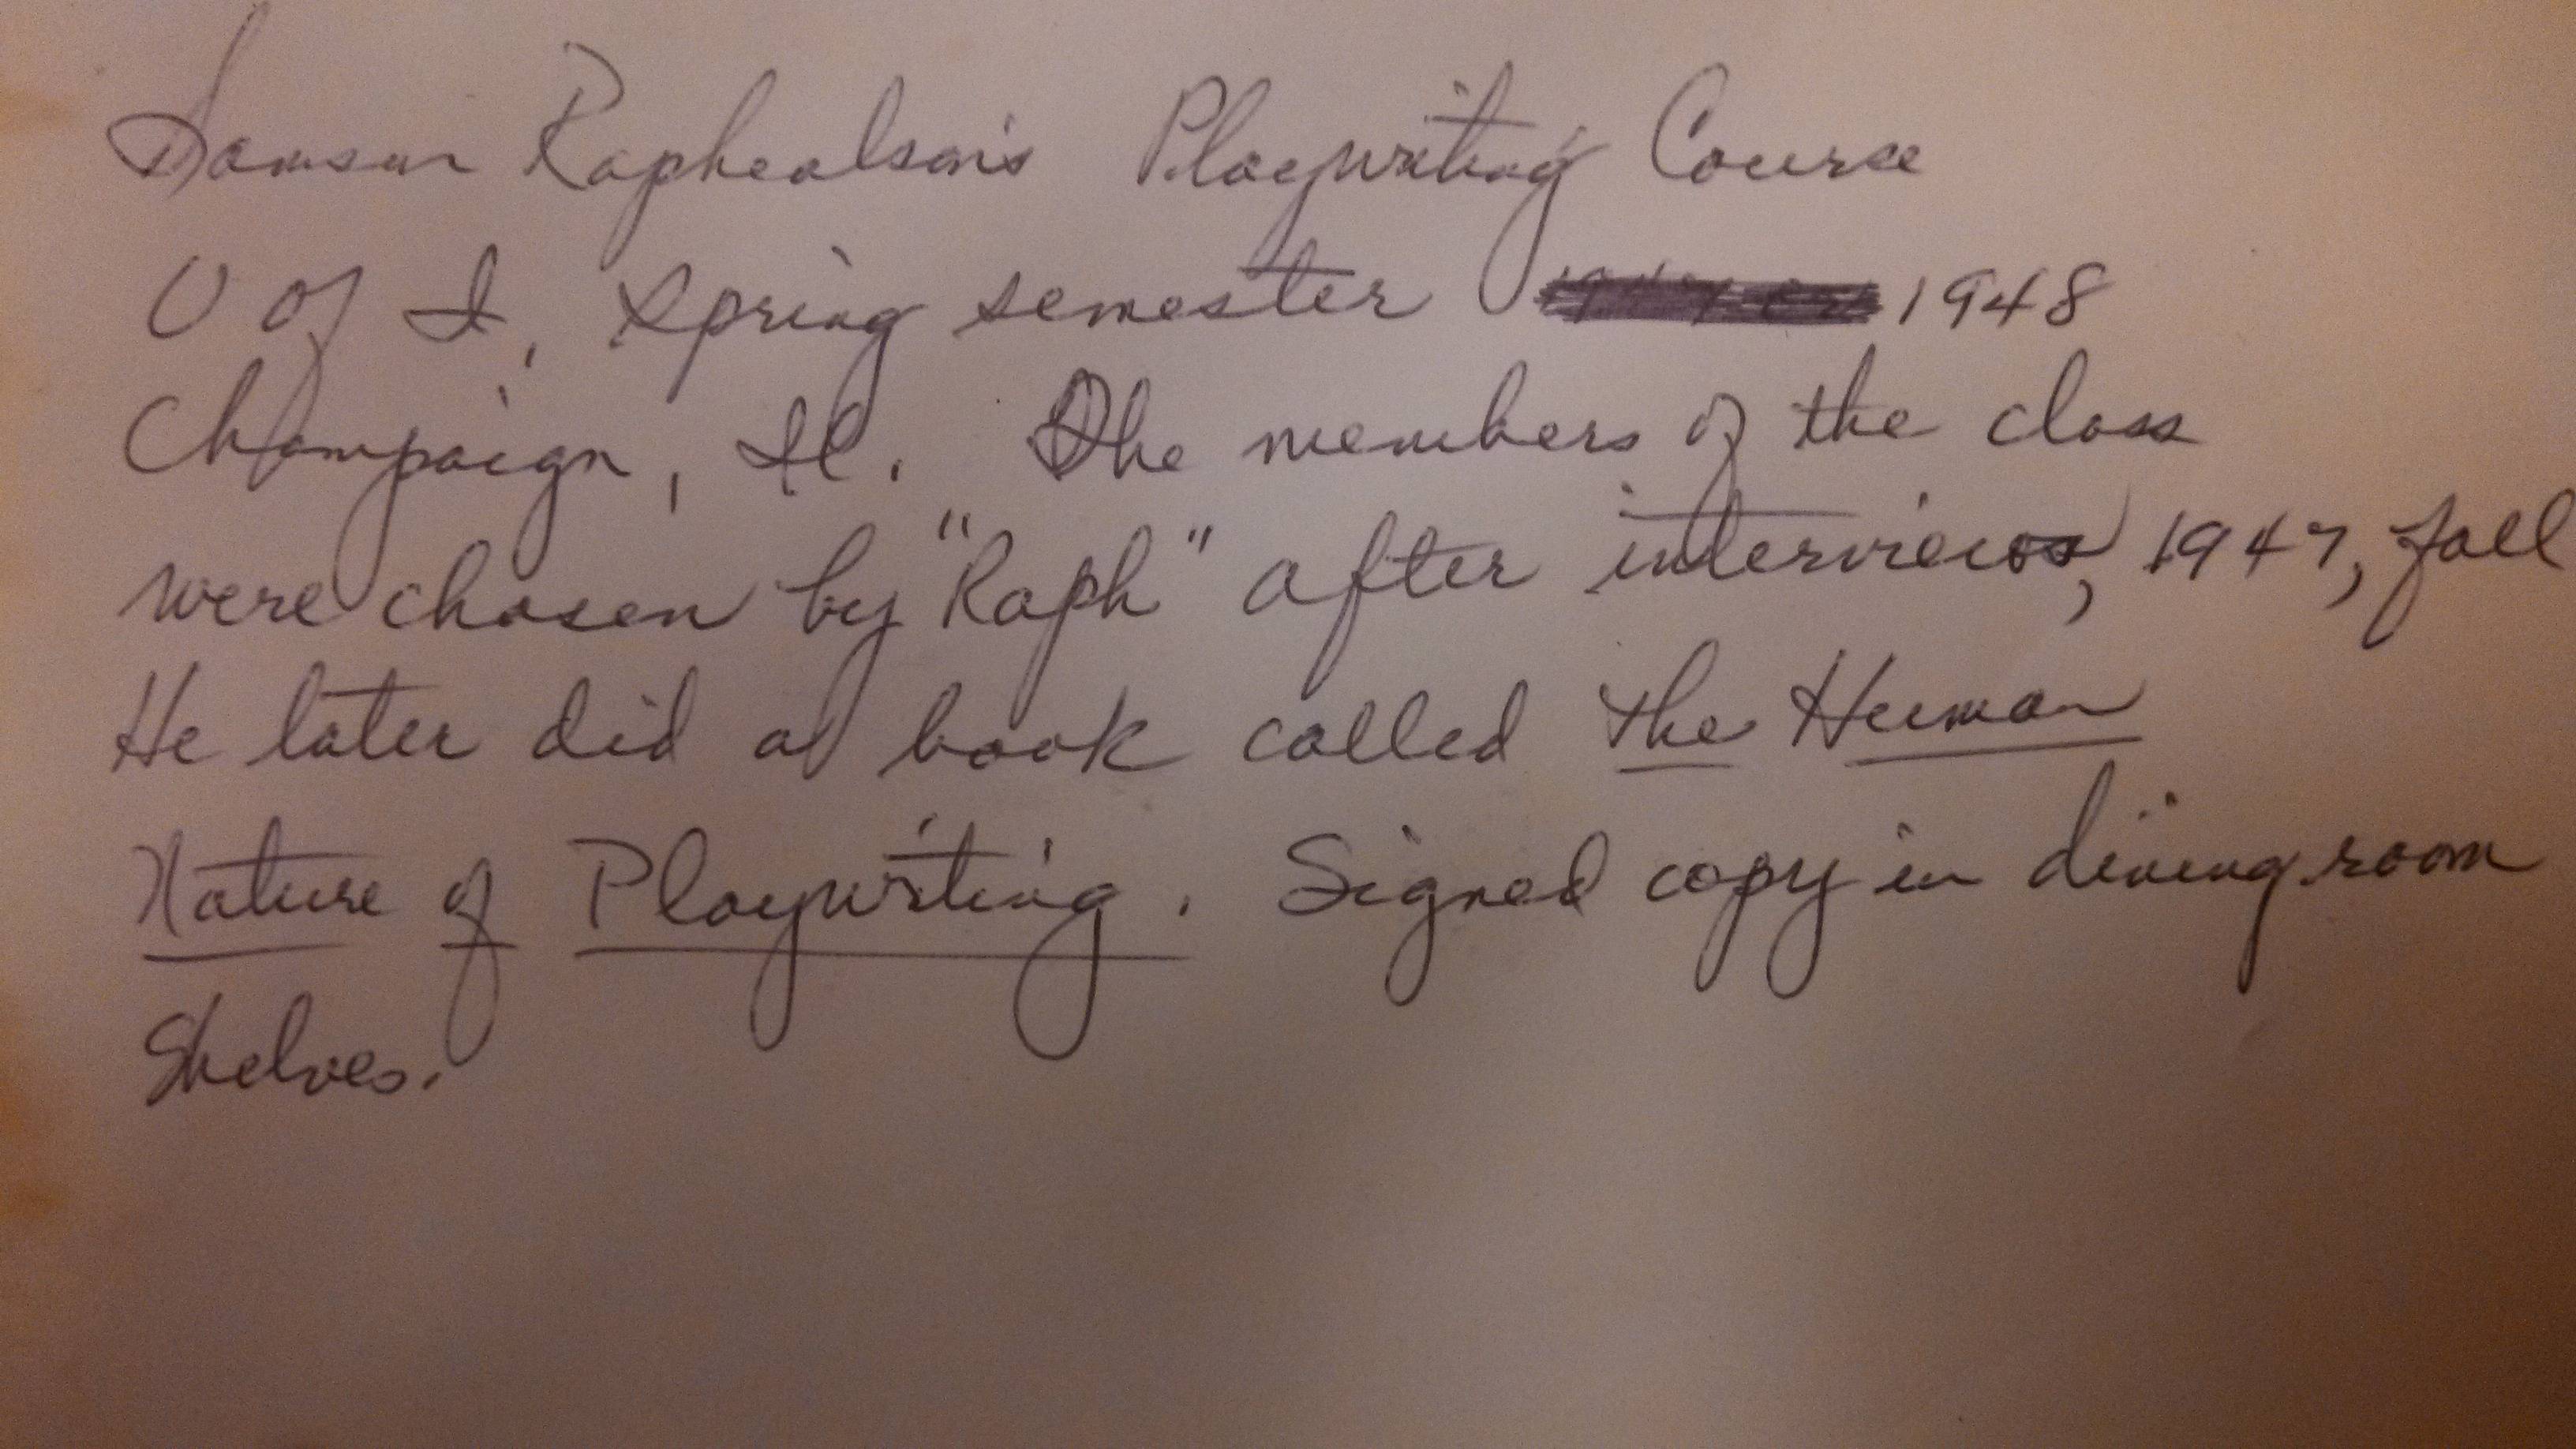 Samson Raphealson's Playwriting Course
U of I, Spring semester 1948
Champaign, Il. The members of the class
were chosen by "Raph" after interviews, 1947, fall
He later did a book called the Human
Nature of Playwriting. Signed copy in dining room
Shelves.